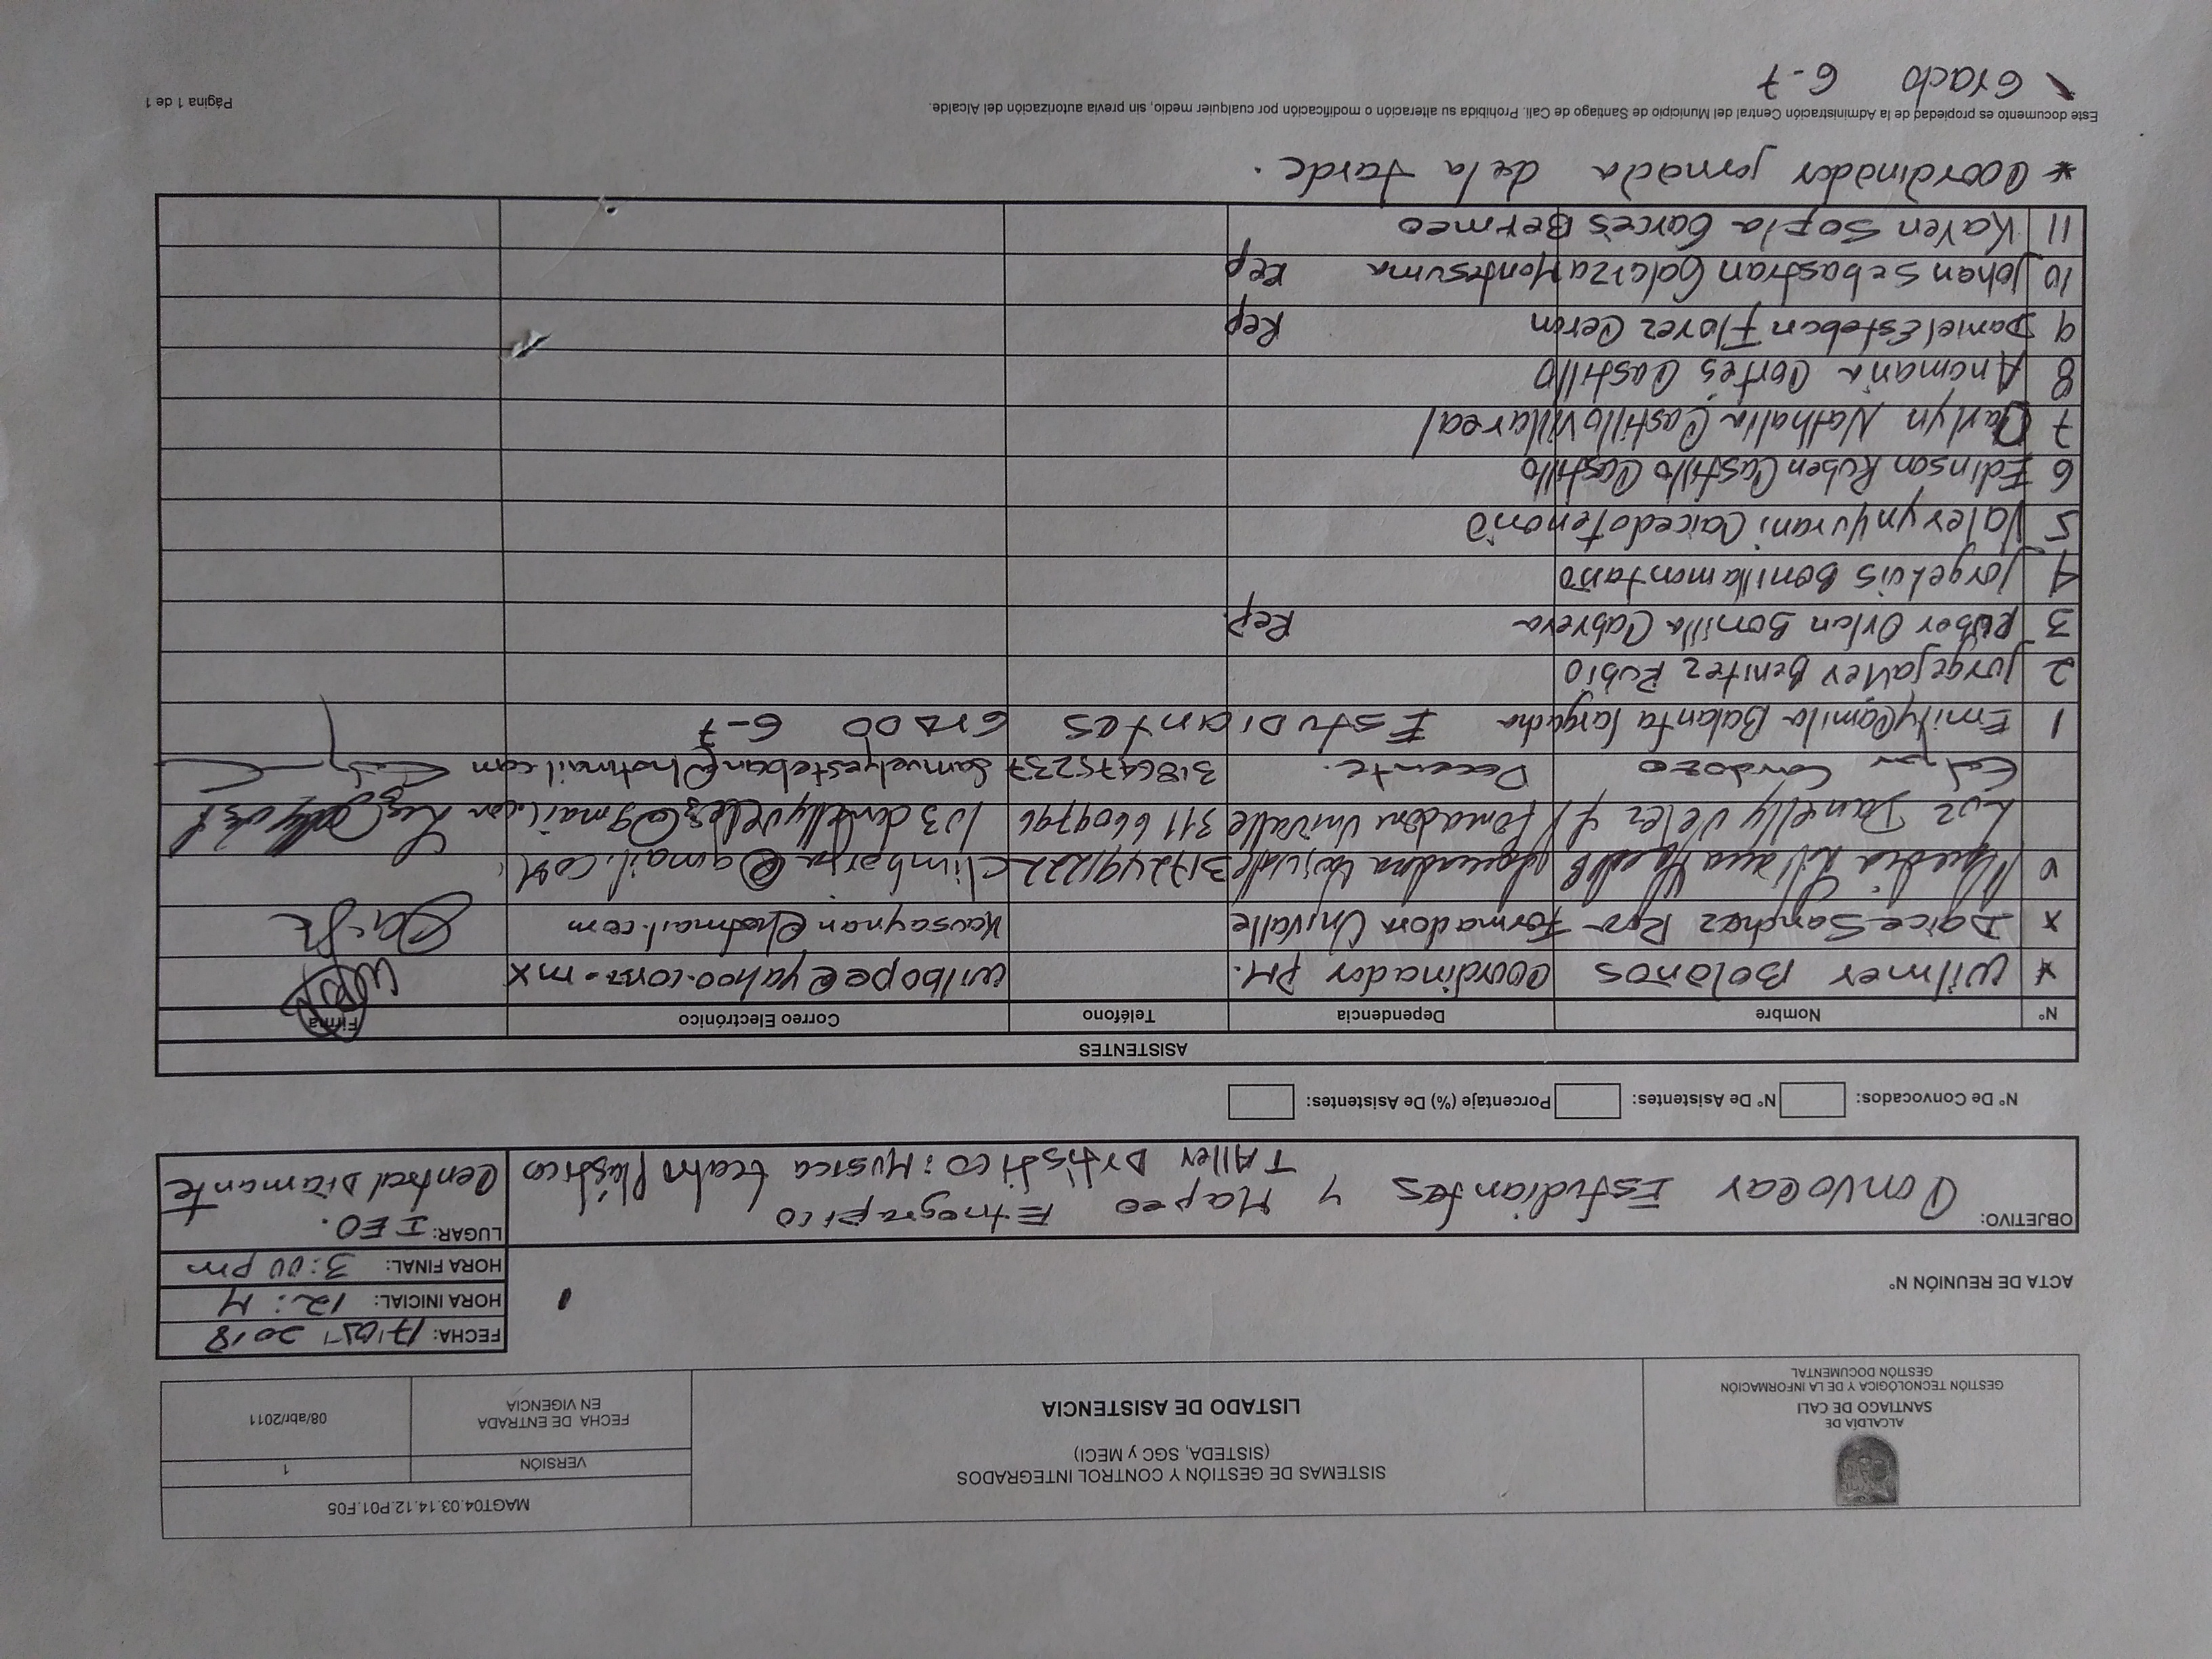 ALCALDÍA DE
SANTIAGO DE CALI
GESTIÓN TECNOLÓGICA Y DE LA INFORMACIÓN
GESTIÓN DOCUMENTAL
SISTEMAS DE GESTIÓN Y CONTROL INTEGRADOS
(SISTEDA, SGC y MECI)
LISTADO DE ASISTENCIA
MAGT04.03.14.12.P01.F05
VERSIÓN 1
FECHA DE ENTRADA
EN VIGENCIA
08/abr/2011
FECHA: 17/05/ 2018
HORA INICIAL: 12: M
ACTA DE REUNIÓN N°
HORA FINAL: 3:00 pm
LUGAR: IEO.
Central Diamante
OBJETIVO: Convocar Estudiantes y Mapeo Etnografico
TAller Artistico: Musica teatro Plásticos
N° De Convocados: N° De Asistentes: Porcentaje (%) De Asistentes:
ASISTENTES
N° Nombre Dependencia Teléfono Correo Electrónico Firma
* Wilmer Bolaños Coordinador P.M. wilbope@yahoo.com.mx
x Daice Sanchez Formadora Univalle Kausaynan@hotmail.com
Claudia Liliana Formadora Univalle 3172491222 climborja@gmail.com
Luz Danelly Velez Formadora Univalle 311 6609796 luzdanellyvelez@gmail.com
Edgar Cardozo Docente. 3186475237 Samuelyesteban@hotmail.com
1 Emily Camila Balanta Estudiantes GrADO 6-7
2 Jorge Javier Benitez Rubio
3 Ruber Orlan Bonilla Cabrera Rep.
4 Jorge Luis Bonilla montaño
5 Valeryn Yurani Caicedo Tenorio
6 Edinson Ruben Castillo Castillo
7 Carlyn Nathalia Castillo Villareal
8 Anamaria Cortés Castillo
9 Daniel Esteban Florez Ceron Rep
10 Johan Sebastian Galarza Montesuma Rep
11 Karen Sofia Garcés Bermeo
* Coordinador jornada de la tarde.
Este documento es propiedad de la Administración Central del Municipio de Santiago de Cali. Prohibida su alteración o modificación por cualquier medio, sin previa autorización del Alcalde.
Página 1 de 1
Grado 6-7